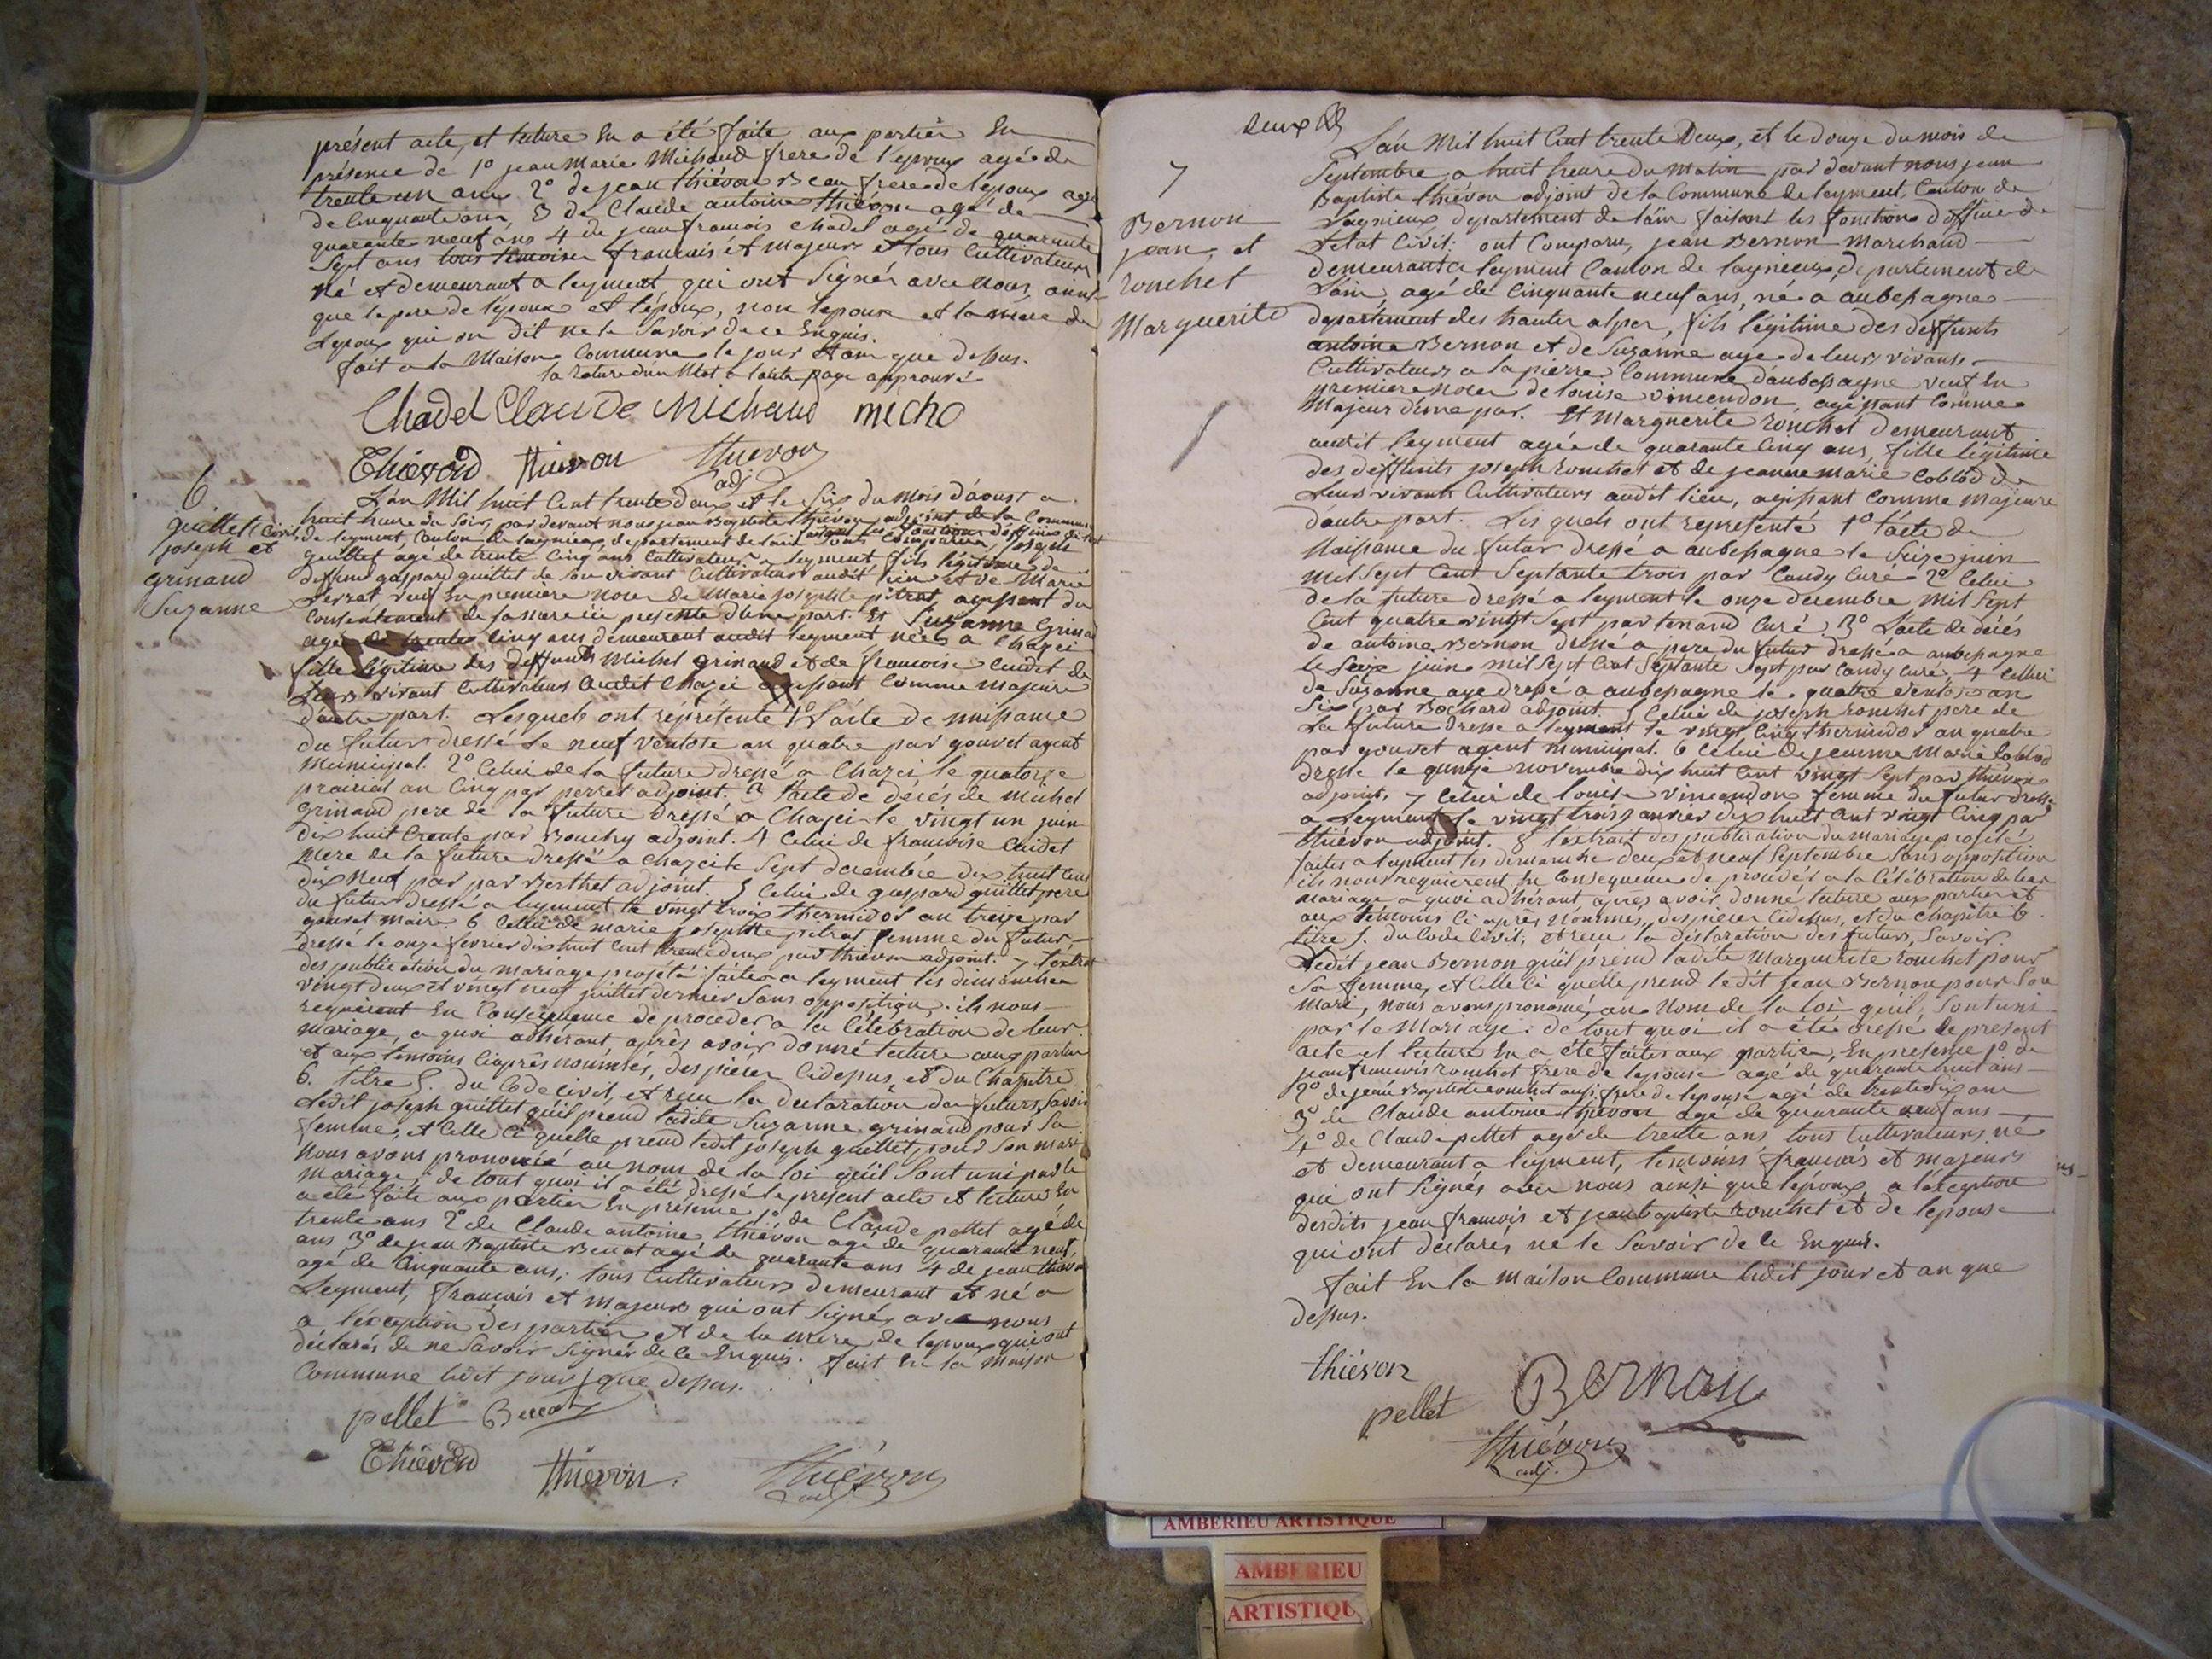 présent acte, et lecture En a été faite aux parties En
présence de 1º jean Marie Michaud frere de l'epoux agé de
trente un ans 2º de jean thiévon Beau frere de l'epoux agé
de Cinquante ans, 3 de Claude antoine thiévon agé de
quarante neuf ans 4 de jean francois chadel agé de quarante
Sept ans tous témoins francais et Majeurs et tous Cultivateurs
né et demeurant a leyment, qui ont Signés avec nous, ainsi
que le pere de l'epoux et l'époux, non l'epouse et la mere de
L'epoux qui on Dit ne le Savoir de ce Enquis.
fait a la Maison Commune le jour et an que dessus.
la rature d'un Mot a page approuvé
Chadel Claude Michaud micho
Thiévon thievon thievon
adj
6
guillet
joseph et
grinand
Suzanne
L'an Mil huit Cent trente deux et le Six du Mois d'aoust a
huit heure du Soir, par devant nous jean Baptiste thiévon adjoint de la Commune
de leyment, Canton de lagnieux departement de l'ain faisant les fonctions d'officier de
Civil, Sont Comparus, joseph
guillet agé de trente Cinq ans Cultivateur a leyment fils légitime de
deffunt gaspard guillet de Son vivant Cultivateur audit lieu et de Marie
veuf En premiere noces de Marie josephte pitrat agissant du
Consentement de sa mere ici presente d'une part. Et Suzanne Grinand
agée de trente Cinq ans demeurant audit leyment née a Chazei
fille légitime des deffunts Michel grinand et de francoise Cuidet de
Leurs vivant Cultivateurs audit Chazei agissant Comme Majeure
d'autre part. Lesquels ont réprésenté 1º L'acte de naissance
du futur dressé le neuf ventose an quatre par gouvet agent
Municipal. 2º Celui de la future dressé a Chazei le quatorze
prairial an Cinq par perret adjoint. 3 l'acte de décés de Michel
grinand pere de la future dressé a Chazei le vingt un juin
dix huit Cent par Bouchy adjoint. 4 Celui de francoise Cuidet
Mere de la future dressé a chazei le Sept decembre dix huit Cent
dix neuf par par Berthet adjoint. 5 Celui de gaspard guillet pere
du futur dressé a leyment le vingt trois thermidor an treize par
gouvet Maire. 6 Celui de marie josephte pitrat femme du futur,
dressé le onze fevrier dix huit Cent trente deux par thiévon adjoint. 7 l'extrait
des publication du mariage projeté faites a leyment les dimanches
vingt deux et vingt neuf juillet dernier Sans opposition. ils nous
requierent En Conséquence de proceder a la Célébration de leur
mariage, a quoi adhérant, après avoir donné lecture aux parties
et aux témoins Ciaprès nommés, des pièces Cidessus, et du Chapitre
6. titre 5. du Code Civil, et recu la declaration des futurs, Savoir
Ledit joseph guillet qu'il prend ladite Suzanne grinand pour Sa
femme, et Celle Ci quelle prend ledit joseph guillet, pour Son mari
Nous avons prononcé au nom de la loi qu'il Sont uni par le
mariage; de tout quoi il a été dressé le present acte et lecture En
a été faite aux parties En présence 1º de Claude pellet agé de
trente ans 2º de Claude antoine thiévon agé de quarante neuf
ans 3º de jean Baptiste Berrat agé de quarante ans 4 de jean thiévon
agé de Cinquante ans, tous Cultivateurs demeurant et né a
Leyment, francais et Majeurs qui ont Signé, avec nous
a l'exception des parties et de la mere de l'epoux qui ont
déclarés de ne Savoir Signer de ce Enquis. fait En la Maison
Commune ledit jour que dessus.
pellet Berrat
Thiévon thiévon. thiévon
adj.
deux
7
Bernon
jean, et
ronchet
Marguerite
L'an Mil huit Cent trente Deux, et le douze du mois de
Septembre, a huit heure du Matin par devant nous jean
Baptiste thiévon adjoint de la Commune de leyment, Canton de
Lagnieux departement de l'ain faisant les fonctions d'officier de
L'etat Civil: ont Comparu, jean Bernon Marchand
demeurant a leyment Canton de lagnieux, departement de
L'ain, agé de Cinquante neuf ans, né a aubessagne
departement des hautes alpes, fils légitime des deffunts
antoine Bernon et de Suzanne aye de leurs vivans
Cultivateurs a la pierre Commune d'aubessagne veuf En
premiere noces de louise vincendon, agissant Comme
Majeur d'une part. Et Marguerite ronchet demeurant
audit leyment agée de quarante Cinq ans, fille légitime
des deffunts joseph ronchet et de jeanne marie Coblod de
Leurs vivants Cultivateurs audit lieu, agissant Comme Majeure
d'autre part. Lesquels ont representé 1º l'acte de
Naissance du futur dressé a aubessagne le Seize juin
Mil Sept Cent Septante trois par Candy Curé 2º Celui
de la future dressé a leyment le onze decembre Mil Sept
Cent quatre vingt Sept par tenand Curé, 3º L'acte de décés
de antoine Bernon pere du futur dressé a aubessagne
le Seize juin Mil Sept Cent Septante Sept par Candy Curé, 4 Celui
de Suzanne aye dressé a aubessagne le quatre ventose an
Six par Bochard adjoint 5 Celui de joseph ronchet pere de
La future dressé a leyment le vingt Cinq thermidor an quatre
par gouvet agent Municipal. 6 Celui de jeanne Marie Coblod
dressé le quinze novembre dix huit Cent vingt Sept par thiévon
adjoint, 7 Celui de louise vincendon femme du futur dressé
a Leyment le vingt trois janvier dix huit Cent vingt Cinq par
thiévon adjoint. 8 l'extrait des publication du mariage projeté
faites a leyment les dimanche deux et neuf Septembre Sans opposition
ils nous requierent En Consequence de procéder a la Célébration de leur
mariage a quoi adhérant, apres avoir donné lecture aux parties et
aux témoins Ci après nommés, des pieces Cidessus, et du Chapitre 6.
titre 5. du Code Civil, et recu la déclaration des futurs, Savoir.
Ledit jean Bernon qu'il prend ladite Marguerite ronchet pour
Sa femme, et Celle Ci quelle prend ledit jean Bernon pour Son
mari, nous avons prononcé, au Nom de la Loi qu'il, Sont uni
par le Mariage. de tout quoi il a été dressé le present
acte et lecture En a été faites aux parties, En presence 1º de
jean francois ronchet frere de l'epouse agé de quarante huit ans
2º de jean Baptiste ronchet aussi frere de l'epouse agé de trente Six ans
3º de Claude antoine thiévon agé de quarante neuf ans
4º de Claude pellet agé de trente ans, tous Cultivateurs, né
et demeurant a leyment, temoins francais et majeurs
qui ont Signés avec nous ainsi que l'epoux a l'éxception
desdits jean francois et jean baptiste ronchet et de l'epouse
qui ont déclarés ne le Savoir de ce Enquis.
fait En la maison Commune ledit jour et an que
dessus.
thiévon
pellet Bernon
thiévon
adj.
AMBERIEU ARTISTIQUE
AMBERIEU
ARTISTIQU